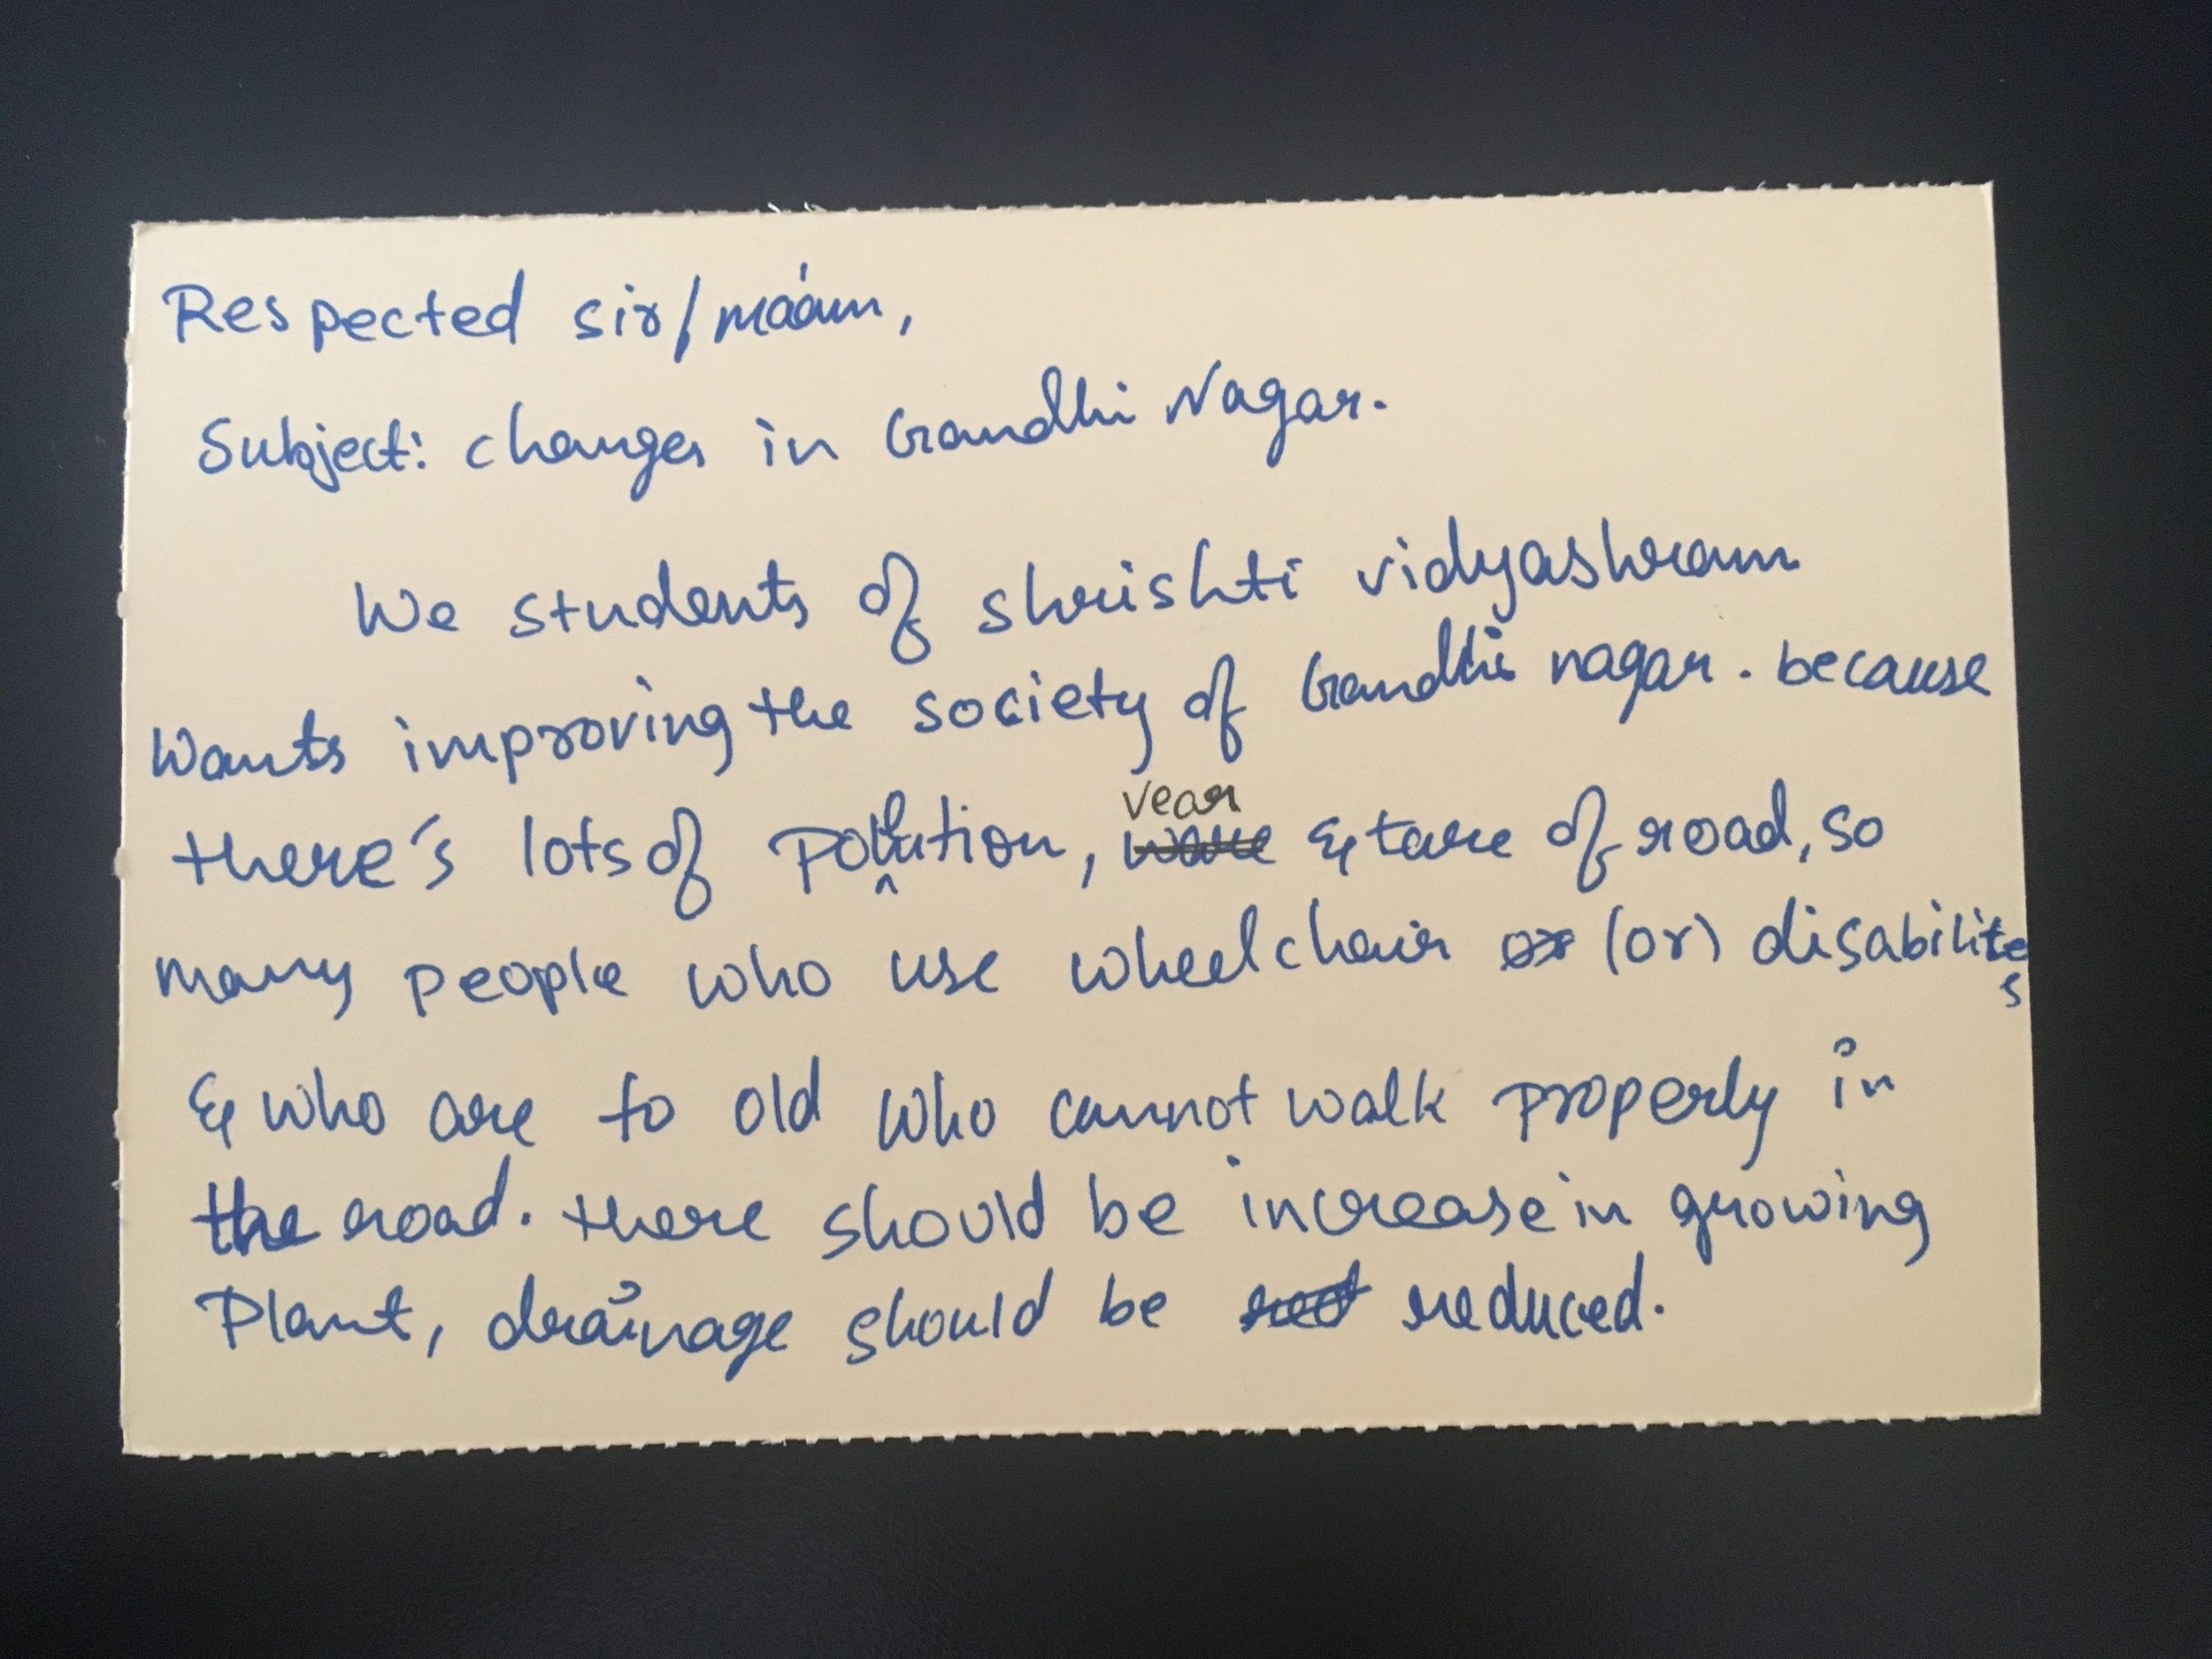 Respected sir/ma'am,
Subject: changes in Gandhi Nagar.
We students of shrishti vidyashram
wants improving the society of Gandhi nagar. because
there's lots of Pollution, vear & tare of road, so
many people who use wheelchair or (or) disabilites
& who are to old who cannot walk properly in
the road. there should be increase in growing
Plant, drainage should be red reduced.